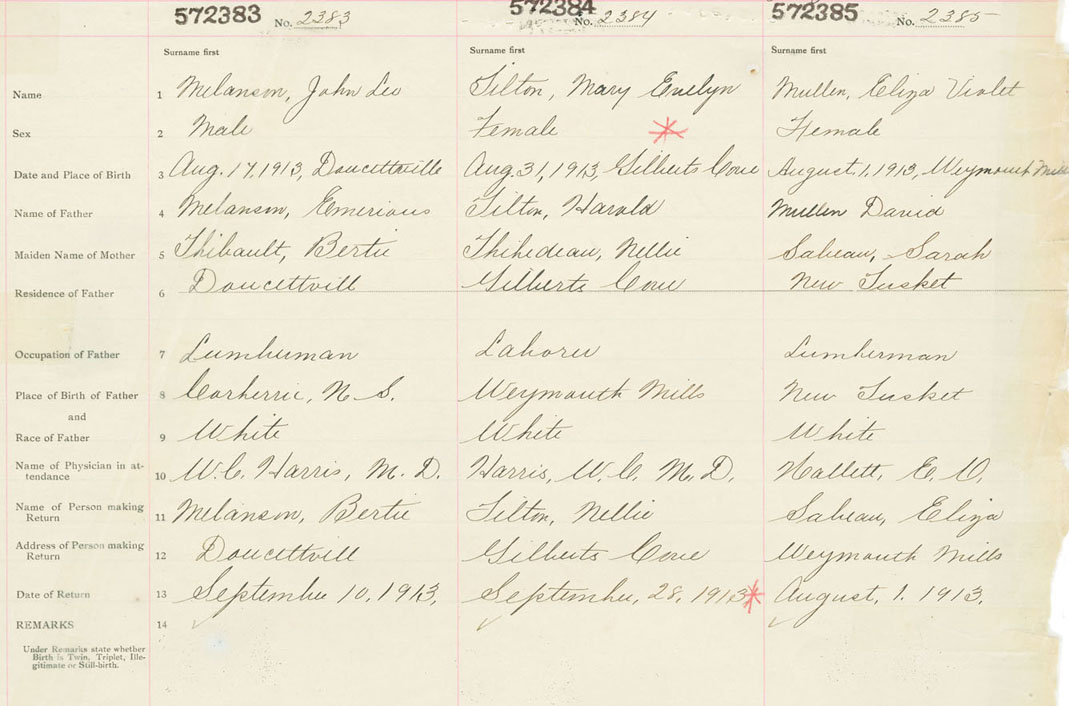 572383 No. 2383 572384 No. 2384 572385 No. 2385
Surname first Surname first Surname first
Name 1 Melanson, John Leo Tilton, Mary Evelyn Mullen, Eliza Violet
Sex 2 Male Female Female
Date and Place of Birth 3 Aug. 17, 1913, Doucettville Aug. 31, 1913, Gilberts Cove August, 1, 1913, Weymouth Mills
Name of Father 4 Melanson, Emerious Tilton, Harold Mullen David
Maiden Name of Mother 5 Thibault, Bertie Thibedeau, Nellie Sabeau, Sarah
Residence of Father 6 Doucettvill Gilberts Cove New Tusket
Occupation of Father 7 Lumberman Laborer Lumberman
Place of Birth of Father 8 Corberrie, N. S. Weymouth Mills New Tusket
and
Race of Father 9 White White White
Name of Physician in at-
tendance 10 W. C. Harris, M. D. Harris, W. C. M. D. Hallett, E. O.
Name of Person making
Return 11 Melanson, Bertie Tilton, Nellie Sabeau, Eliza
Address of Person making
Return 12 Doucettvill Gilberts Cove Weymouth Mills
Date of Return 13 September 10, 1913, September, 28, 1913 August, 1. 1913,
REMARKS 14
Under Remarks state whether
Birth is Twin, Triplet, Ille-
gitimate or Still-birth.